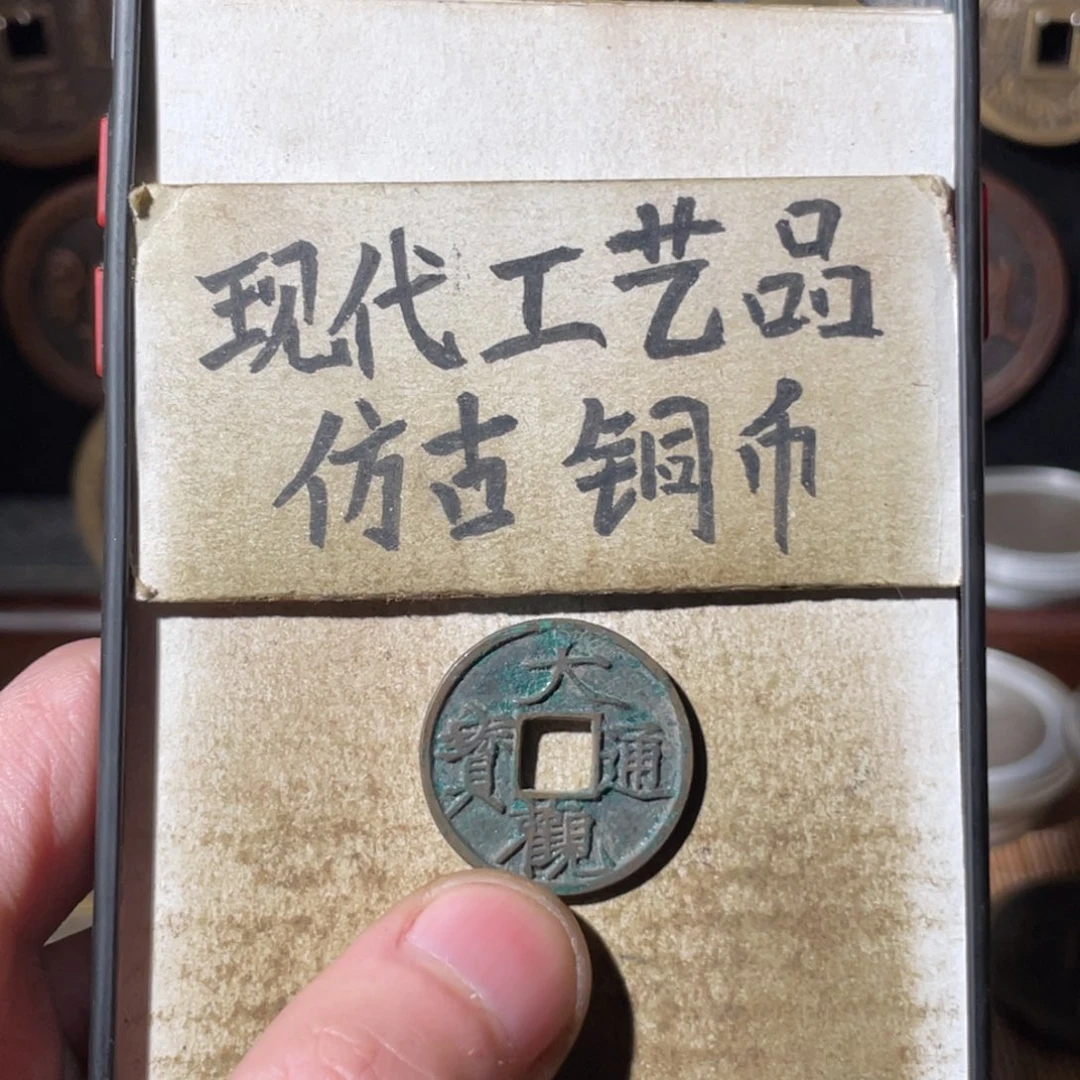 现代工艺品
仿古铜币
大觀通寶